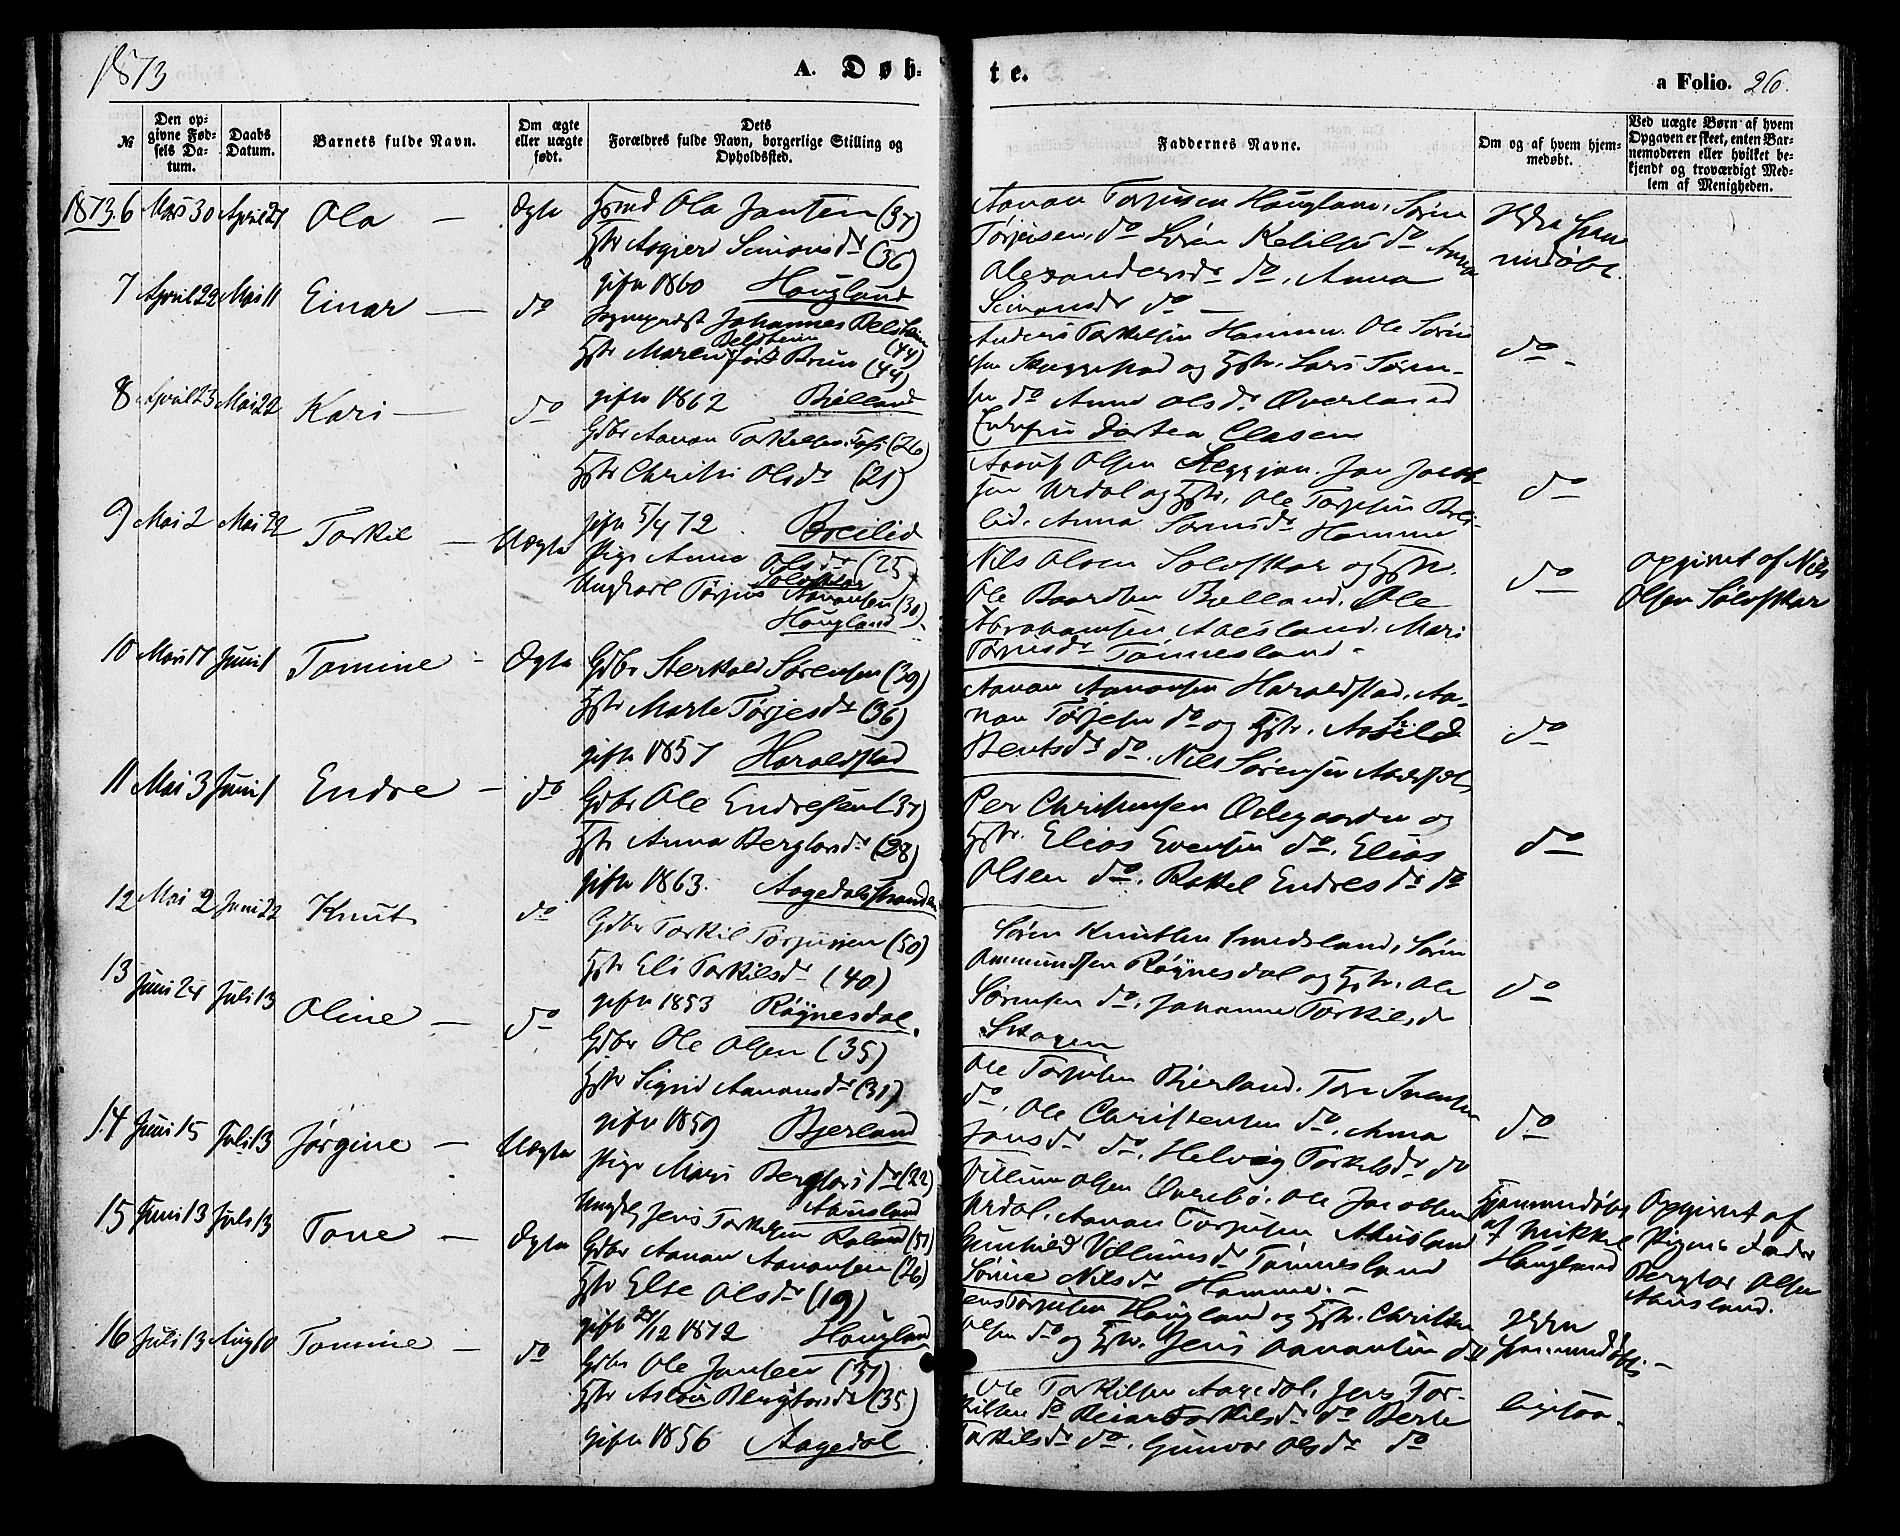 1873
A. Døb-
te.
a Folio. 26.
№
Den op-
givne Fød-
sels Da-
tum.
Daabs
Datum.
Barnets fulde Navn.
Om ægte
eller uægte
født.
Dets
Forældres fulde Navn, borgerlige Stilling og
Opholdsted.
Faddernes Navne.
Om og af hvem hjem-
medøbt.
Ved uægte Børn af hvem
Opgaven er skeet, enten Bar-
nemoderen eller hvilket be-
kjendt og troværdigt Med-
lem af Menigheden.
1873. 6 Mars 30 April 27 Ola — Ægte
Ola Jansen (37)
Hstr Asgjer Simonsdr (36)
gifte 1860 Hougland
Aanan Torjusen Hougland, Søren
Torjusen, do Søren Ketilsen do Anna
Alexandersdr do, Anna
Simonsdr do —
7 April 22 Mai 11 Einar — do
Sogneprest Johannes Belsheim
(44)
Hstr Maren Belsheim født Brun (44)
gifte 1862 Bjelland
Anders Torkelsen Hamme. Ole Søren
sen Skeggestad og Hstr. Lars Søren-
sen do Anne Olsdr. Øverland
Dortea Clasen
do -
8 April 23 Mai 22 Kari — do
Gdbr Aanan Torkelsen (26)
Hstr Christi Olsdr (21)
gifte 5/4 72 Breilid
Olsen Jan Jacob-
sen Urdal og Hstr. Ole Torjusen Brei-
lid. Anna Sørensdr Hamme
do
9 Mai 2 Mai 22 Torkil — Uægte
Pige Anne Olsdr (25)
Solofskar
Ungkarl Tørjus Aanansen (30)
Hougland
Nils Olsen Solofskar og Hstr.
Ole Baardsen Bjelland. Ole
Abrahamsen Aaesland. Mari
Tørresdr Tønnesland -
do
opgivet af Nils
Olsen Solofskar
10 Mai 17 Juni 1 Tomine - Ægte
Gdbr Sterkold Sørensen (39)
Hstr Marte Tørjesdr (36)
gifte 1857 Haraldstad
Aanan Aanansen Haraldstad. Aa-
nan Tørjesen do og Hstr. Aashild
Bentsdr do. Nils Sørensen
do
11 Mai 3 Juni 1 Endre — do
Gdbr Ole Endresen (37)
Hstr Anna Berglansdr (28)
gifte 1863. Aagedalstranden
Per Christensen Ødegaarden og
Hstr. Elias Evensen do. Elias
Olsen do. Rakel Endresdr do
do
12 Mai 2 Juni 22 Knut do
Gdbr Torkil Torjussen (50)
Hstr Eli Torkilsdr (40)
gifte 1853 Røynesdal.
Søren Knutsen Smedsland, Søren
Ommundsen Røynesdal og Hstr. Ole
Sørensen do. Johanne Torkilsd
Skagen
do
13 Juni 24 Juli 13 Oline — do
Gdbr Ole Olsen (35)
Hstr Sigrid Aanansdr (31)
gifte 1859 Bjerland
Ole Torjusen Bjerland. Tore Svensen
do. Ole Christensen do. Anna
Jansdr do. Helvig Torkelsdr do
do
14 Juni 15 Juli 13 Jørgine — Uægte
Pige Mari Berglarsdr (22)
Ahusland
Jens Torkelsen Roland (51)
Villum Olsen Øvrebø. Ole Jacobsen
Urdal. Aanan Torjusen Ahusland
Gunhild Villumsdr Tønnesland
Sørine Nilsdr Hamme. —
Hjemmedøbt
af Mikkel
Hougland
Opgivet af
Pigens Fader
Berglar Olsen
Ahusland.
15 Juni 13 Juli 13 Tone — Ægte
Gdbr Aanan Aanansen (26)
Hstr Else Olsdr (19)
gifte 21/12 1872 Hougland
Jens Torjusen Hougland og Hstr. Christen
Olsen do og Hstr. Jens Aanansen do
16 Juli 13 Aug 10 Tomine — do
Gdbr Ole Jansen (37)
Hstr Aslau Bergtorsdr (35)
gifte 1856 Aagedal
Ole Torkilsen Aagedal, Jens Tor-
kilsen do Torkilsdr do Berte
Torkilsdr do. Gunvor Olsdr do
ligesaa.